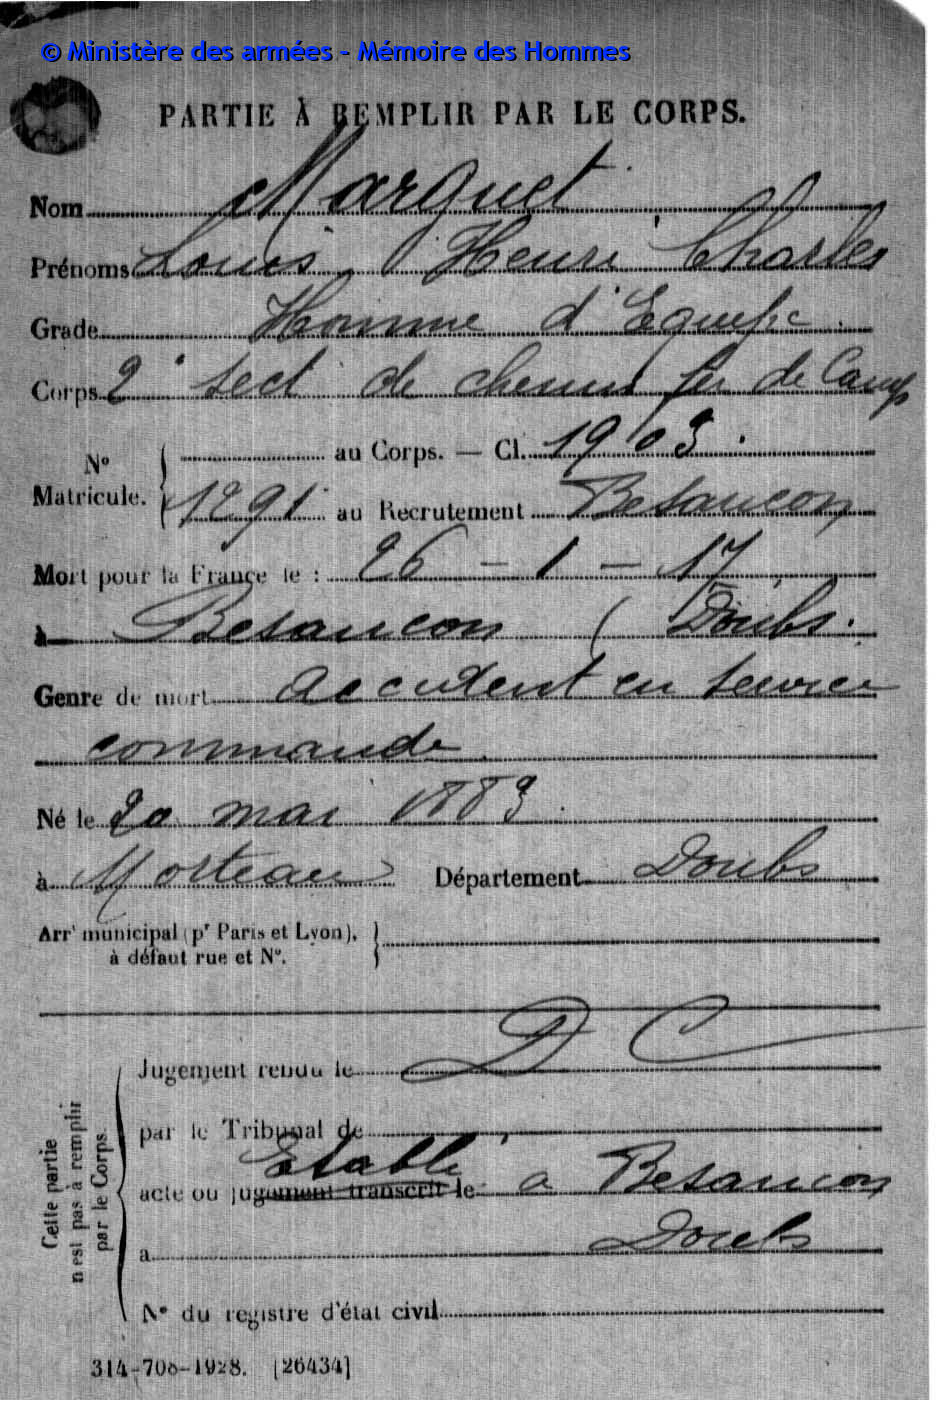 © Ministère des armées - Mémoire des Hommes
PARTIE À REMPLIR PAR LE CORPS.
Nom Marguet
Prénoms Louis, Henri Charles
Grade Homme d'Equipe
Corps 2e sect de chemin fer de Camp
au Corps. — Cl. 1903.
N° Matricule. 1291 au Recrutement Besancon
Mort pour la France le : 26 - 1 - 17
à Besancon (Doubs.
Genre de mort accident en service
commandé.
Né le 20 mai 1883.
à Morteau Département Doubs
Arrt municipal (pr Paris et Lyon),
à défaut rue et N°.
Jugement rendu le D C
par le Tribunal de
Etabli
acte ou jugement transcrit le a Besancon
a Doubs
N° du registre d'état civil
Cette partie
n'est pas à remplir
par le Corps.
314-708-1928. [26434]